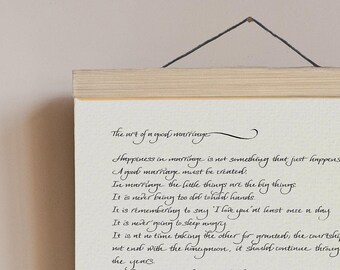 The art of a good marriage
Happiness in marriage is not something that just happens
A good marriage must be created:
In marriage the little things are the big things.
It is never being too old to hold hands.
It is remembering to say 'I love you' at least once a day.
It is never going to sleep angry.
It is at no time taking the other for granted; the courtship
not end with the honeymoon, it should continue through
the years.